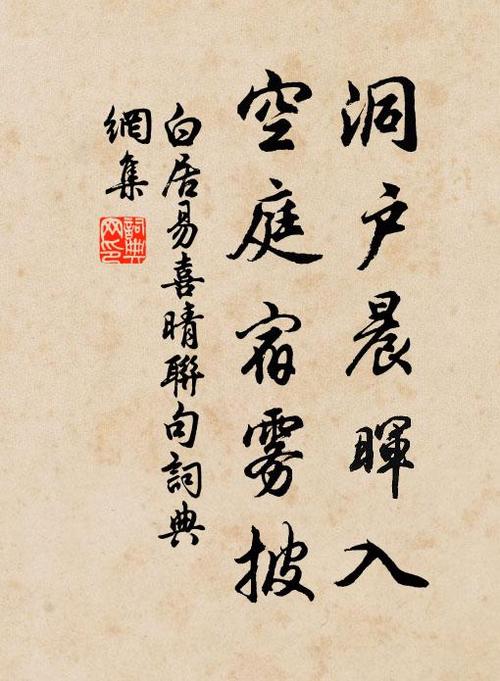 洞户晨暉入
空庭宿雾披
白居易喜晴聯句詞典
網集
詞典网印